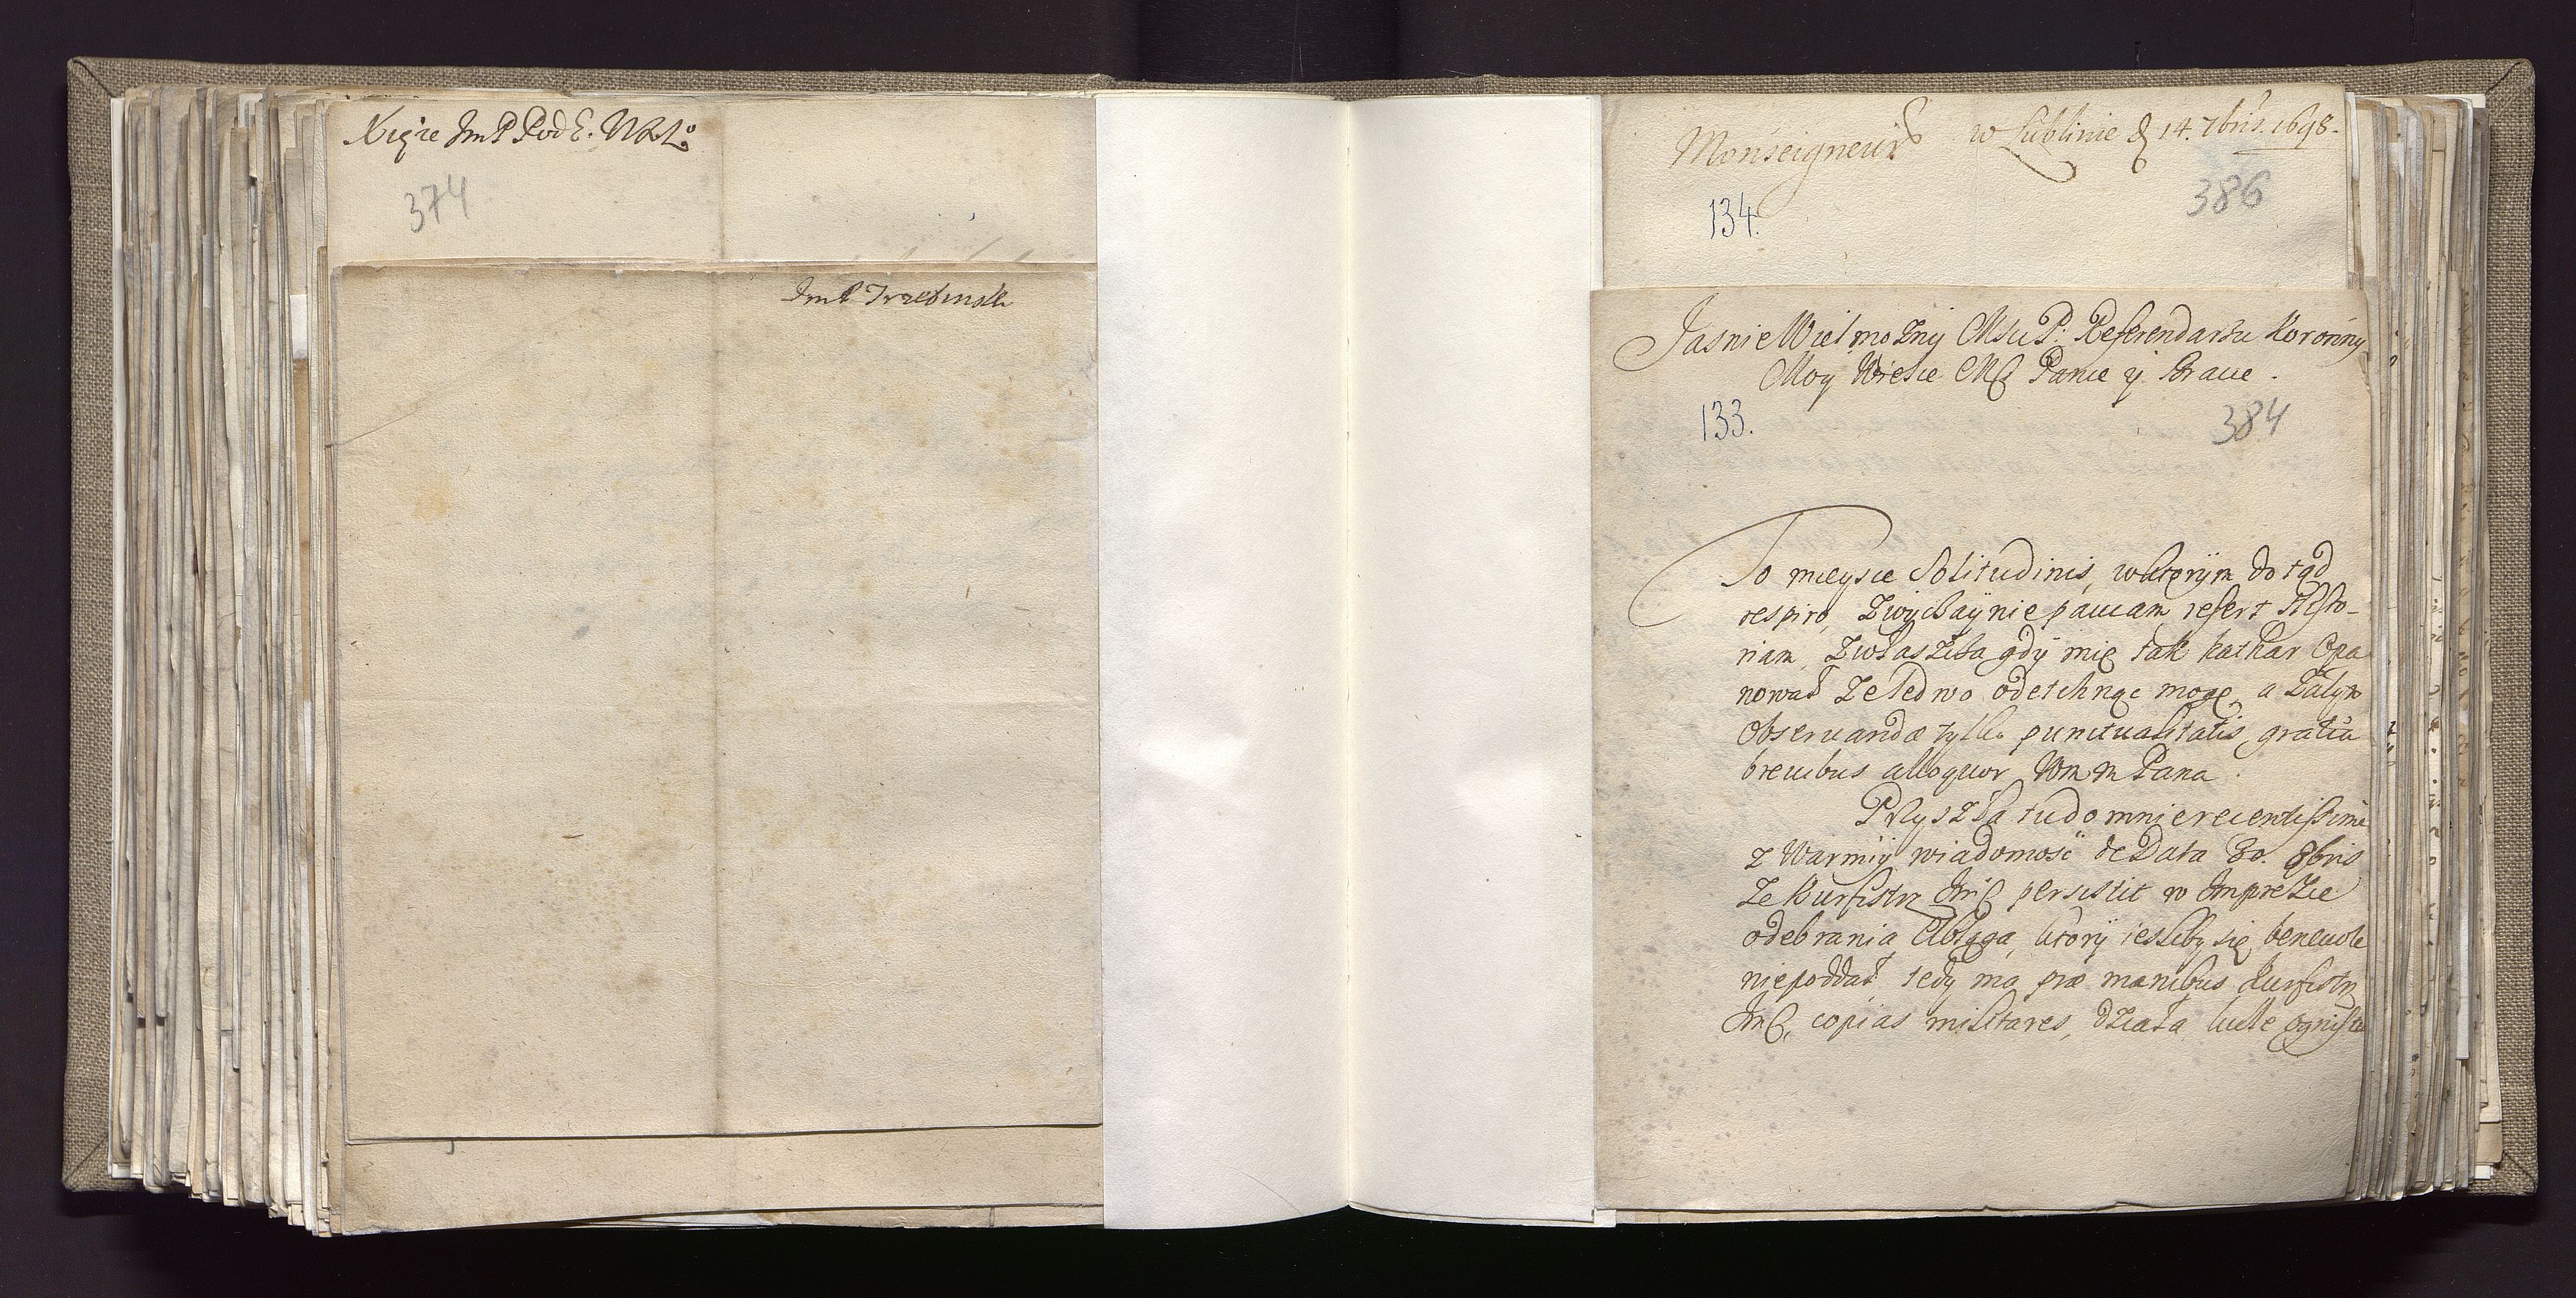 Xiąże JmP Pod E. WXL
374
JmP Trzebinski
Monseigneur
w Lublinie d 14. 7bris. 1698.
134.
386
Jasnie Wielmozny Msci P. Referendarzu Koronny
Moy Wielce Mſ Panie y Bracie.
133.
384
To mieysce Solitudinis, wktorym do tąd
respiro, Zwyczaynie paucam refert Histo-
riam, Zwłaszcza gdy mię tak kathar Opa
nował Ze ledwo odetchnąc mogę, a Zatym
Observandæ tylko punctualitatis gratia
brevibus alloquor Wm m Pana.
Przyszła tu do mnie recentissime
z Warmiy wiadomosc de Data 30. 8bris
Ze Kurfistrz Jmſ persistit w Imprezie
odebrania Elbląga, ktory iesliby się benevole
niepoddał tedy ma præ manibus Kurfistrz
Jmſ, copias militares, działa kule ogniste